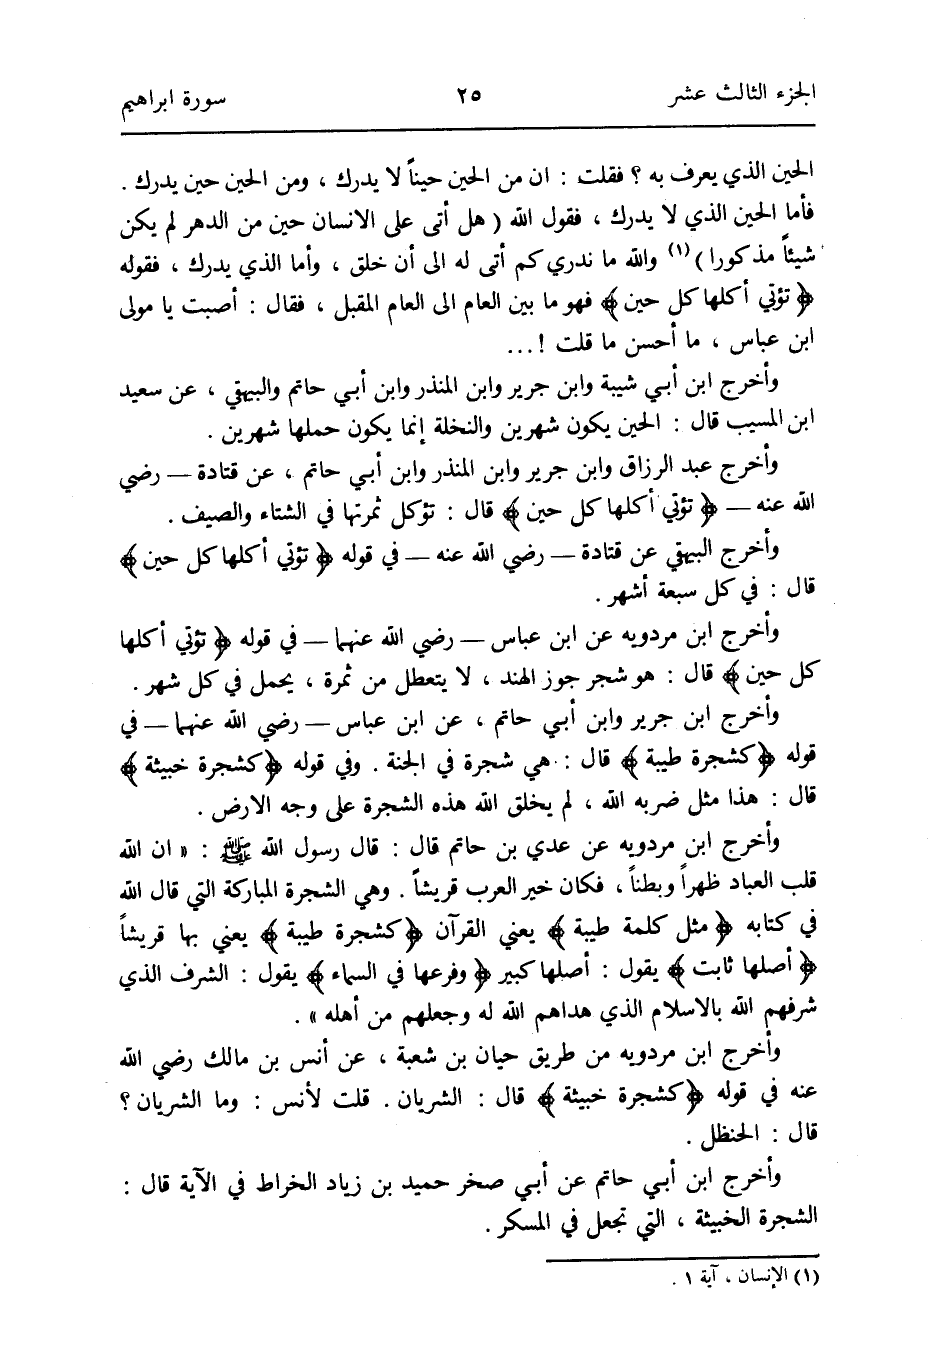 الجزء الثالث عشر ٢٥ سورة ابراهيم
الحين الذي يعرف به ؟ فقلت : ان من الحين حيناً لا يدرك ، ومن الحين حين يدرك .
فأما الحين الذي لا يدرك ، فقول الله ( هل أتى على الانسان حين من الدهر لم يكن
شيئاً مذكورا ) (١) والله ما ندري كم أتى له الى أن خلق ، وأما الذي يدرك ، فقوله
﴿ تؤتي أكلها كل حين ﴾ فهو ما بين العام الى العام المقبل ، فقال : أصبت يا مولى
ابن عباس ، ما أحسن ما قلت ! ...
وأخرج ابن أبي شيبة وابن جرير وابن المنذر وابن أبي حاتم والبيهقي ، عن سعيد
ابن المسيب قال : الحين يكون شهرين والنخلة إنما يكون حملها شهرين .
وأخرج عبد الرزاق وابن جرير وابن المنذر وابن أبي حاتم ، عن قتادة — رضي
الله عنه — ﴿ تؤتي أكلها كل حين ﴾ قال : تؤكل ثمرتها في الشتاء والصيف .
وأخرج البيهقي عن قتادة — رضي الله عنه — في قوله ﴿ تؤتي أكلها كل حين ﴾
قال : في كل سبعة أشهر .
وأخرج ابن مردويه عن ابن عباس — رضي الله عنهما — في قوله ﴿ تؤتي أكلها
كل حين ﴾ قال : هو شجر جوز الهند ، لا يتعطل من ثمرة ، يحمل في كل شهر .
وأخرج ابن جرير وابن أبي حاتم ، عن ابن عباس — رضي الله عنهما — في
قوله ﴿ كشجرة طيبة ﴾ قال : هي شجرة في الجنة . وفي قوله ﴿ كشجرة خبيثة ﴾
قال : هذا مثل ضربه الله ، لم يخلق الله هذه الشجرة على وجه الارض .
وأخرج ابن مردويه عن عدي بن حاتم قال : قال رسول الله ﷺ : « ان الله
قلب العباد ظهراً وبطناً ، فكان خير العرب قريشاً . وهي الشجرة المباركة التي قال الله
في كتابه ﴿ مثل كلمة طيبة ﴾ يعني القرآن ﴿ كشجرة طيبة ﴾ يعني بها قريشاً
﴿ أصلها ثابت ﴾ يقول : أصلها كبير ﴿ وفرعها في السماء ﴾ يقول : الشرف الذي
شرفهم الله بالاسلام الذي هداهم الله له وجعلهم من أهله » .
وأخرج ابن مردويه من طريق حيان بن شعبة ، عن أنس بن مالك رضي الله
عنه في قوله ﴿ كشجرة خبيثة ﴾ قال : الشريان . قلت لأنس : وما الشريان ؟
قال : الحنظل .
وأخرج ابن أبي حاتم عن أبي صخر حميد بن زياد الخراط في الآية قال :
الشجرة الخبيثة ، التي تجعل في المسكر .
(١) الإنسان ، آية ١ .